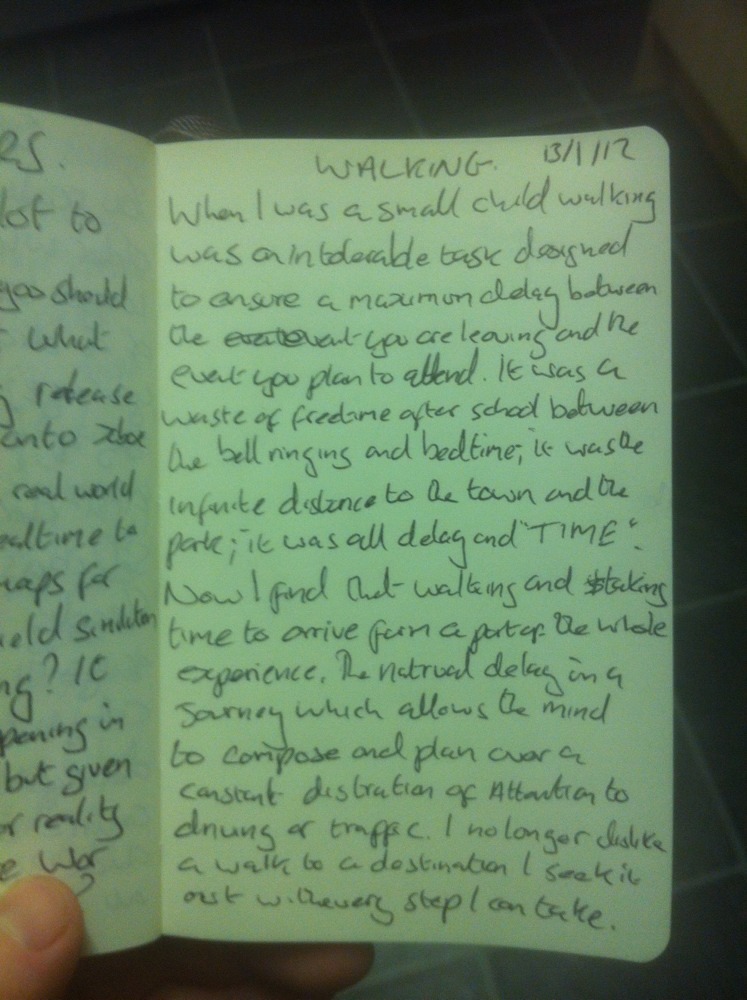 es.
lot to
you should
what
g release
onto xbox
real world
realtime to
maps for
ng? It
pening in
but given
or reality
e War
?
WALKING. 13/1/12
When I was a small child walking
was an intolerable task designed
to ensure a maximum delay between
the you are leaving and the
event you plan to attend. It was a
waste of freetime after school between
the bell ringing and bedtime; it was the
infinite distance to the town and the
park; it was all delay and "TIME".
Now I find that walking and taking
time to arrive form a part of the whole
experience. The natrual delay in a
journey which allows the mind
to compose and plan over a
constant distration of Attention to
driving or traffic. I no longer dislike
a walk to a destination I seek it
out with every step I can take.